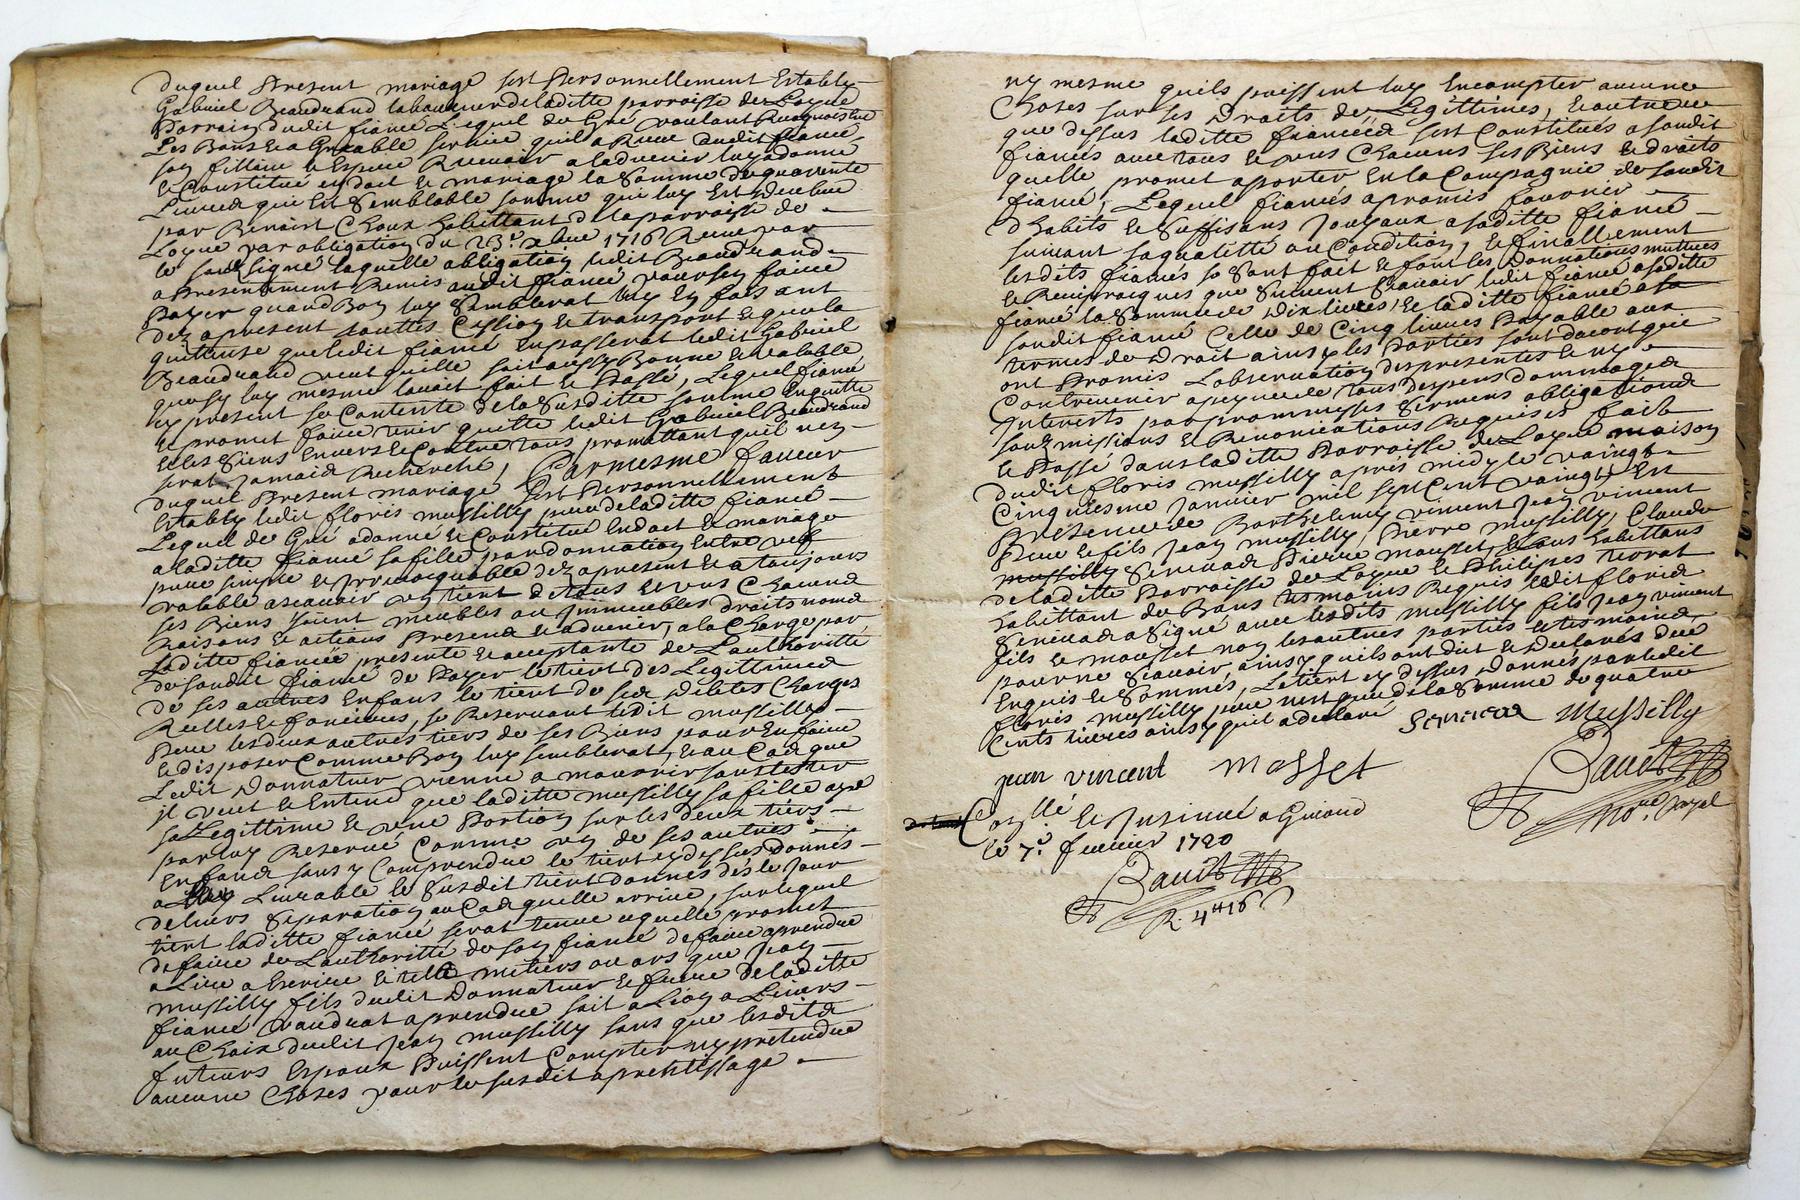 duquel present mariage sest personnellement Estably
Gabriel Beaudrand laboureur de laditte parroisse de Loyse
parrain dudit fiancé Lequel de Gré voulant Recognoistre
Les Bons Et agreable service quil a Receu dudit fiancé
son fillieu & Espere Recevoir a ladvenir luy a donné
& Constitué en dot & mariage la Somme de quarente
Livres qui Est semblable somme qui luy Est deubue
par Benoist Choux habittant de la parroisse de
Loyse par obligation du 23e xbre 1716 Receue par
le soussigné laquelle obligation ledit Beaudrand
a presentement Remis audit fiancé pour sen faire
payer quand Bon luy Semblerat luy En faisant
dez apresent touttes Cession & transport & que la
quittance que ledit fiancé En passerat ledit Gabriel
Beaudrand veut quelle soit aussy Bonne & valable
que sy luy mesme lavoit fait & Passé, Lequel fiancé
cy present se Contente de la Susditte somme En quitte
& promet faire tenir quitte ledit Gabriel Beaudrand
& les Siens Envers & Contre tous promettant quil nen
serat jamais Recherché, Par mesme faveur
duquel Present mariage sest Personnellement
Estably ledit floris mussilly pere de laditte fiancé
Lequel de Gré a donné & Constitué En dot & mariage
a laditte fiancé sa fille par donnation Entre vif
pure simple & jrrevocquable dez apresent & a tousjours
valable ascavoir un tient de tous & uns Chacuns
ses Biens soient meubles ou jmmeubles droits noms
Raisons & actions Presens & advenir, a la Charge par
laditte fiancée presente & acceptante de Lauthoritté
de sondit fiancé de Payer le tient des Legittimes
de ses autres Enfans le tient de ses debtes Charges
Reelles & foncieres, se Reservant ledit mussilly
Pere les deux autres tiers de ses Biens pour En faire
& disposer Comme Bon luy semblerat, & au Cas que
Ledit donnateur vienne a mourrir sans tester
jl veut & Entend que laditte mussilly sa fille aye
sa Legittime & une Portion sur les deux tiers
par luy Reservé Comme un de ses autres
Enfans sans y Comprendre le tient cy dessus donnés
a luy Livrable le Susdit tient donnés dès le jour
de leurs Separation au Cas quelle arrive, sur lequel
tient laditte fiancé serat tenue aquelle promet
de faire de Lauthoritté de son fiancé de faire aprendre
a Lire a Escrire & telle metiers ou ars que Jean
mussilly fils dudit donnateur & frere de laditte
fiancé voudrat aprendre soit a Lion a Livers
au Choix dudit Jean mussilly sans que lesdits
futeurs Espoux Puissent Compter ny pretendre
aucune Choses pour le susdit aprentissage
ny mesme quils puissent luy Encompter aucune
Choses sur les Droits de Legittimes, & outre ce
que dessus laditte fiancées sest Constitués a sondit
fiancés avec tous & uns Chacuns ses Biens & droits
quelle promet aporter En la Compagnie de sondit
fiancé, Lequel fiancés a promis fournir
dhabits & suffisans Jouyaux a saditte fiancé
suivant sa qualitté ou Condition, & finallement
lesdits fiancés se sont fait & font les Donnations mutues
& Reciprocques que Suivent scavoir ledit fiancé a saditte
fiancé la Somme de Dix livres, & laditte fiancé a
sondit fiancé Celle de Cinq livres Payable aux
termes de Droit ainsy les Parties sont dacord qui
ont Promis Lobservation des presentes & ny
Contrevenir a peyne de tous despens dommages
Jnterests par prommesses Sermens obligations
soubmissions & Renonciations Requises fait
& Passé dans laditte Parroisse de Loyse maison
dudit floris mussilly aprés midy le vaingt
Cinquiesme Janvier mil sept Cent vaingts En
Presence de Barthelemy vincent Jean vincent
Pere & fils Jean mussilly, Pierre mussilly, Claude
mussilly Pierre mousset, & tous habittans
de laditte Parroisse de Loyse & Philipes
habittant de Bans tesmoins Requis ledit floris
a signé avec lesdits mussilly fils Jean vincent
fils & mousset non les autres parties & tesmoins
pour ne scavoir ainsy quils ont dict & declarés de ce
Enquis & Sommés, Le tient cy dessus Donnés par ledit
floris mussilly pere nest que de la Somme de quatre
Cents livres ainsy quil a declaré
Mussilly
jean vincent mosset
Baudet
Nore Royal
Conllé & Insinué a Givord
le 7e fevrier 1720
Baudet
R. 4tt 16s